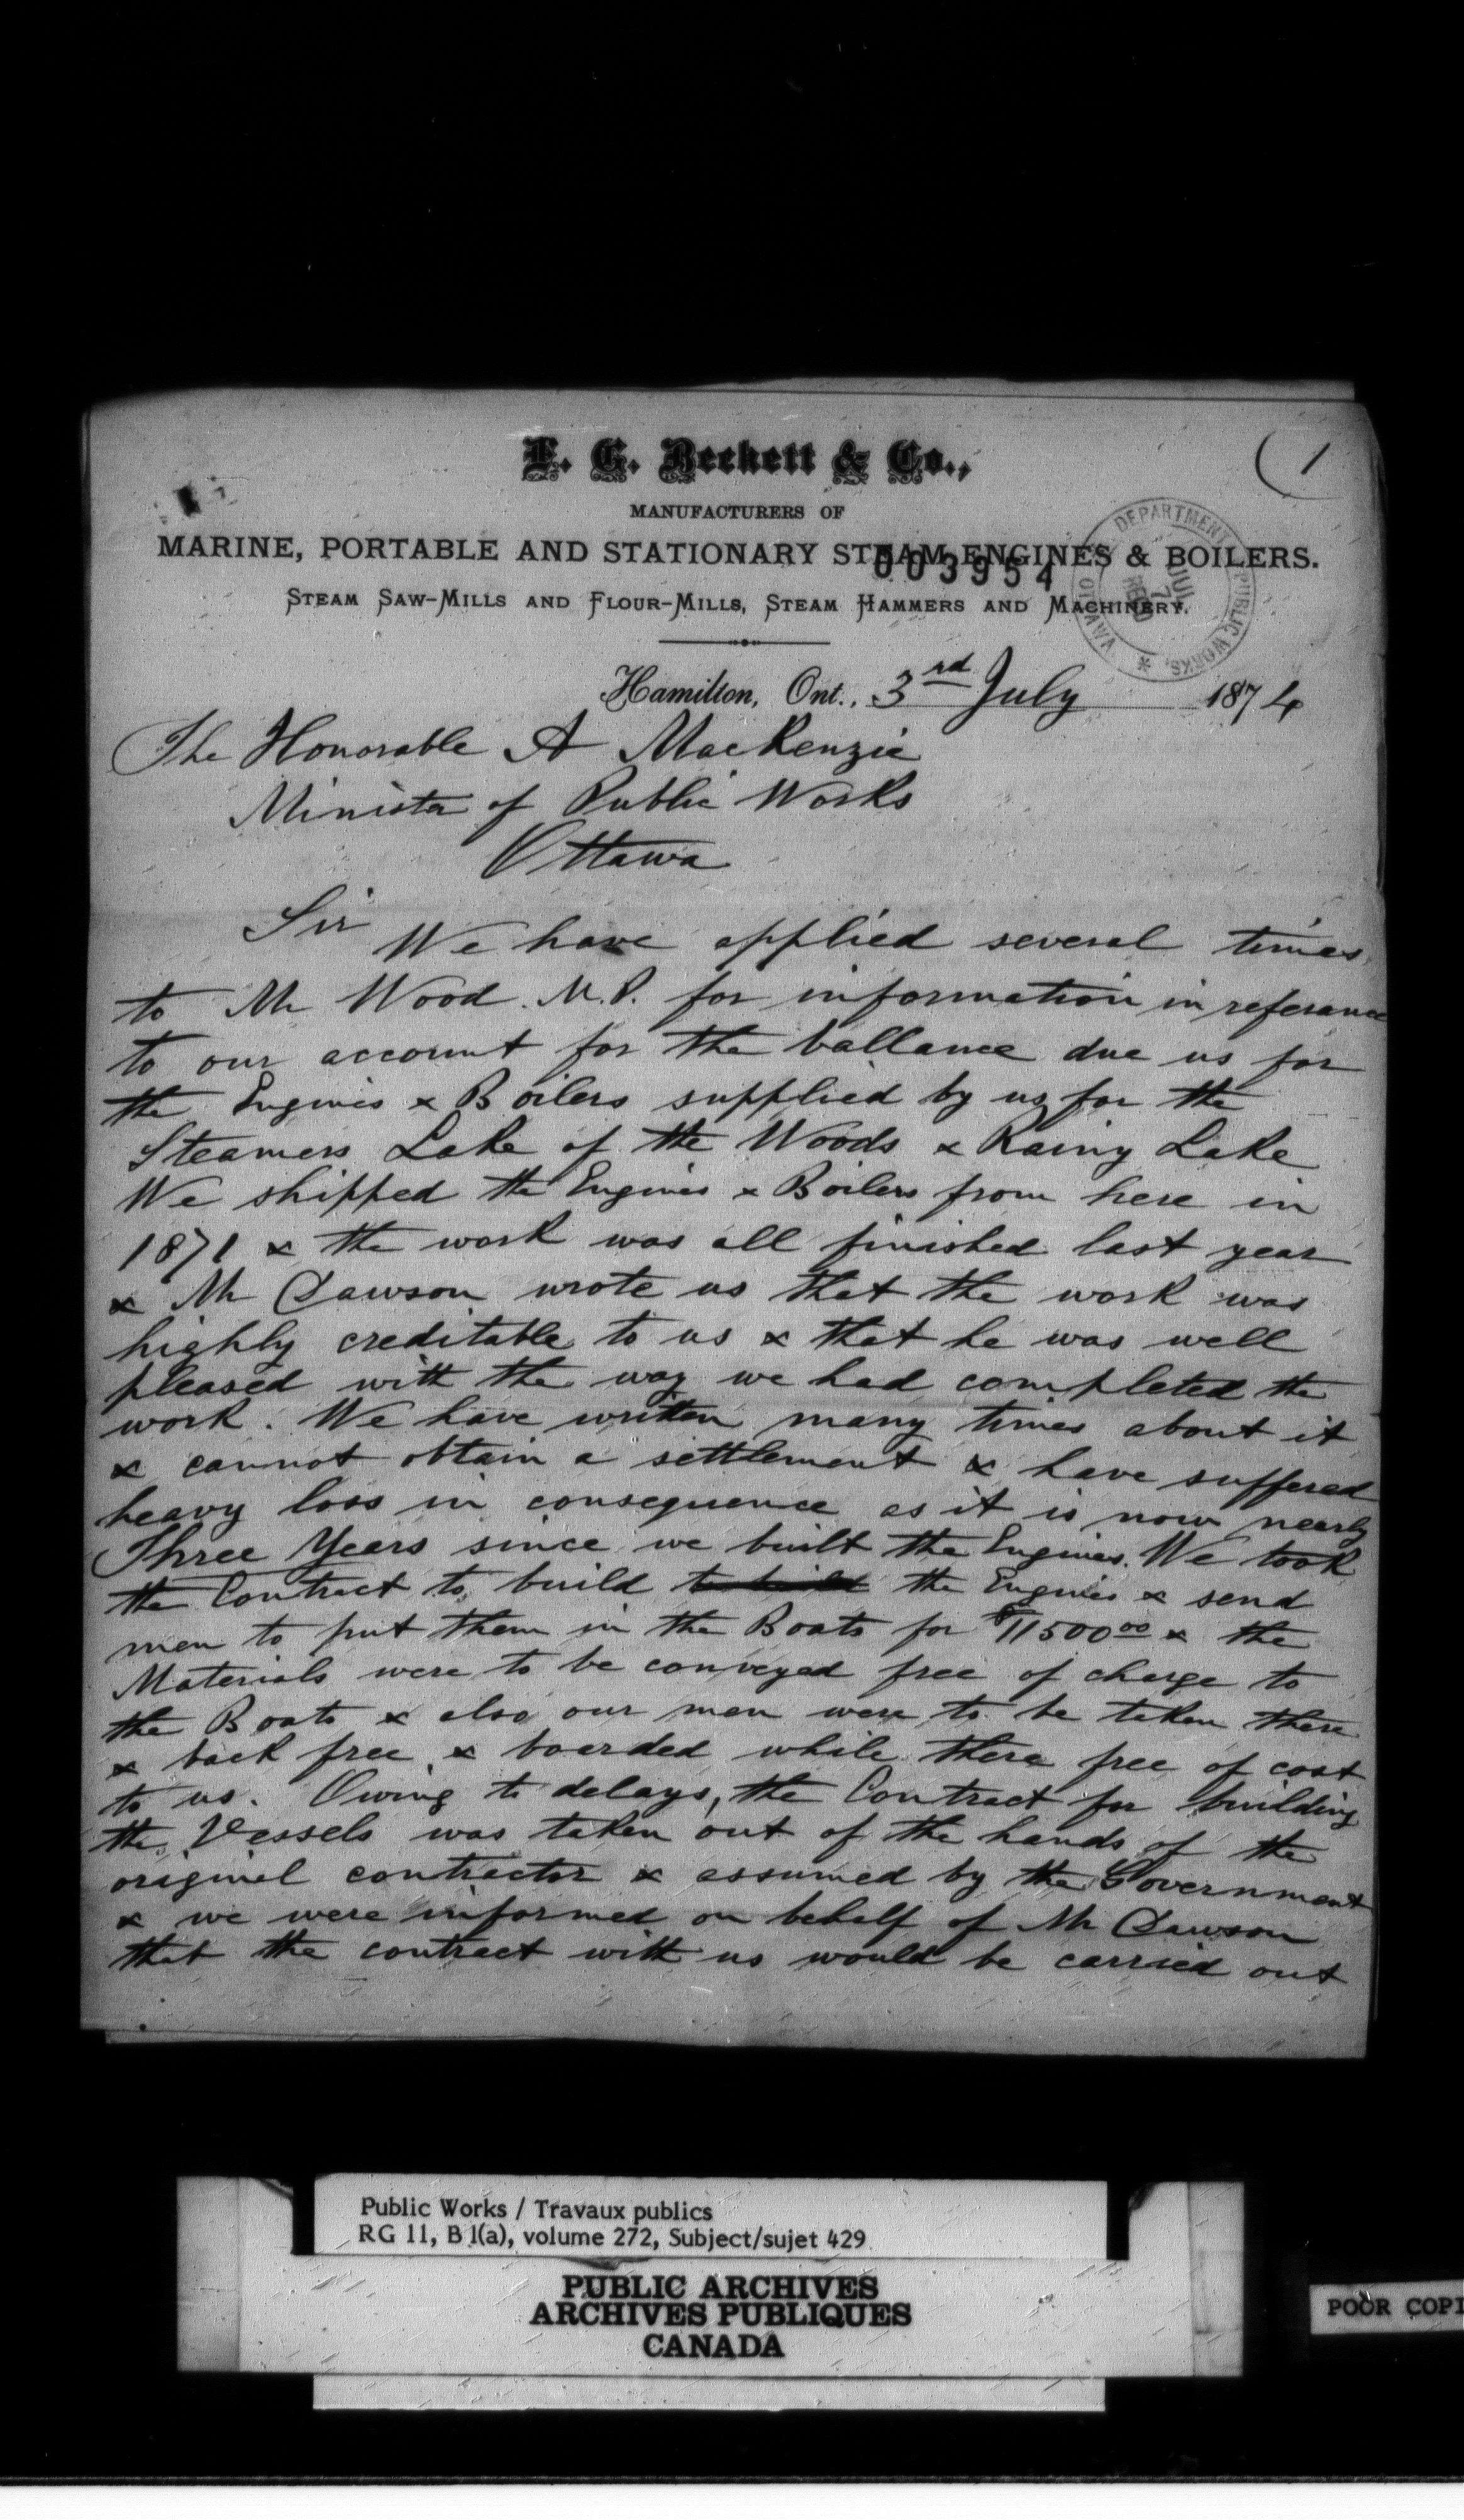 F. G. Beckett & Co.,
(1
MANUFACTURERS OF
MARINE, PORTABLE AND STATIONARY STEAM ENGINES & BOILERS.
003954
STEAM SAW-MILLS AND FLOUR-MILLS, STEAM HAMMERS AND MACHINERY.
DEPARTMENT PUBLIC WORKS, OTTAWA * JUL 7 REC'D
Hamilton, Ont., 3rd July 1874
The Honorable A MacKenzie
Minister of Public Works
Ottawa
Sir
We have applied several times
to Mr Wood. M.P. for information in referance
to our account for the ballance due us for
the Engines & Boilers supplied by us for the
Steamers Lake of the Woods & Rainy Lake
We shipped the Engines & Boilers from here in
1871 & the work was all finished last year
& Mr Dawson wrote us that the work was
highly creditable to us & that he was well
pleased with the way we had completed the
work. We have written many times about it
& cannot obtain a settlement & have suffered
heavy loss in consequence as it is now nearly
Three Years since we built the Engines. We took
the Contract to build to build the Engines & send
men to put them in the Boats for $11500.00 & the
Materials were to be conveyed free of charge to
the Boats & also our men were to be taken there
& back free & boarded while there free of cost
to us. Owing to delays, the Contract for building
the Vessels was taken out of the hands of the
original contractor & assumed by the Government
& we were informed on behalf of Mr Dawson
that the contract with us would be carried out
Public Works / Travaux publics
RG 11, B 1(a), volume 272, Subject/sujet 429
PUBLIC ARCHIVES
ARCHIVES PUBLIQUES
CANADA
POOR COPI